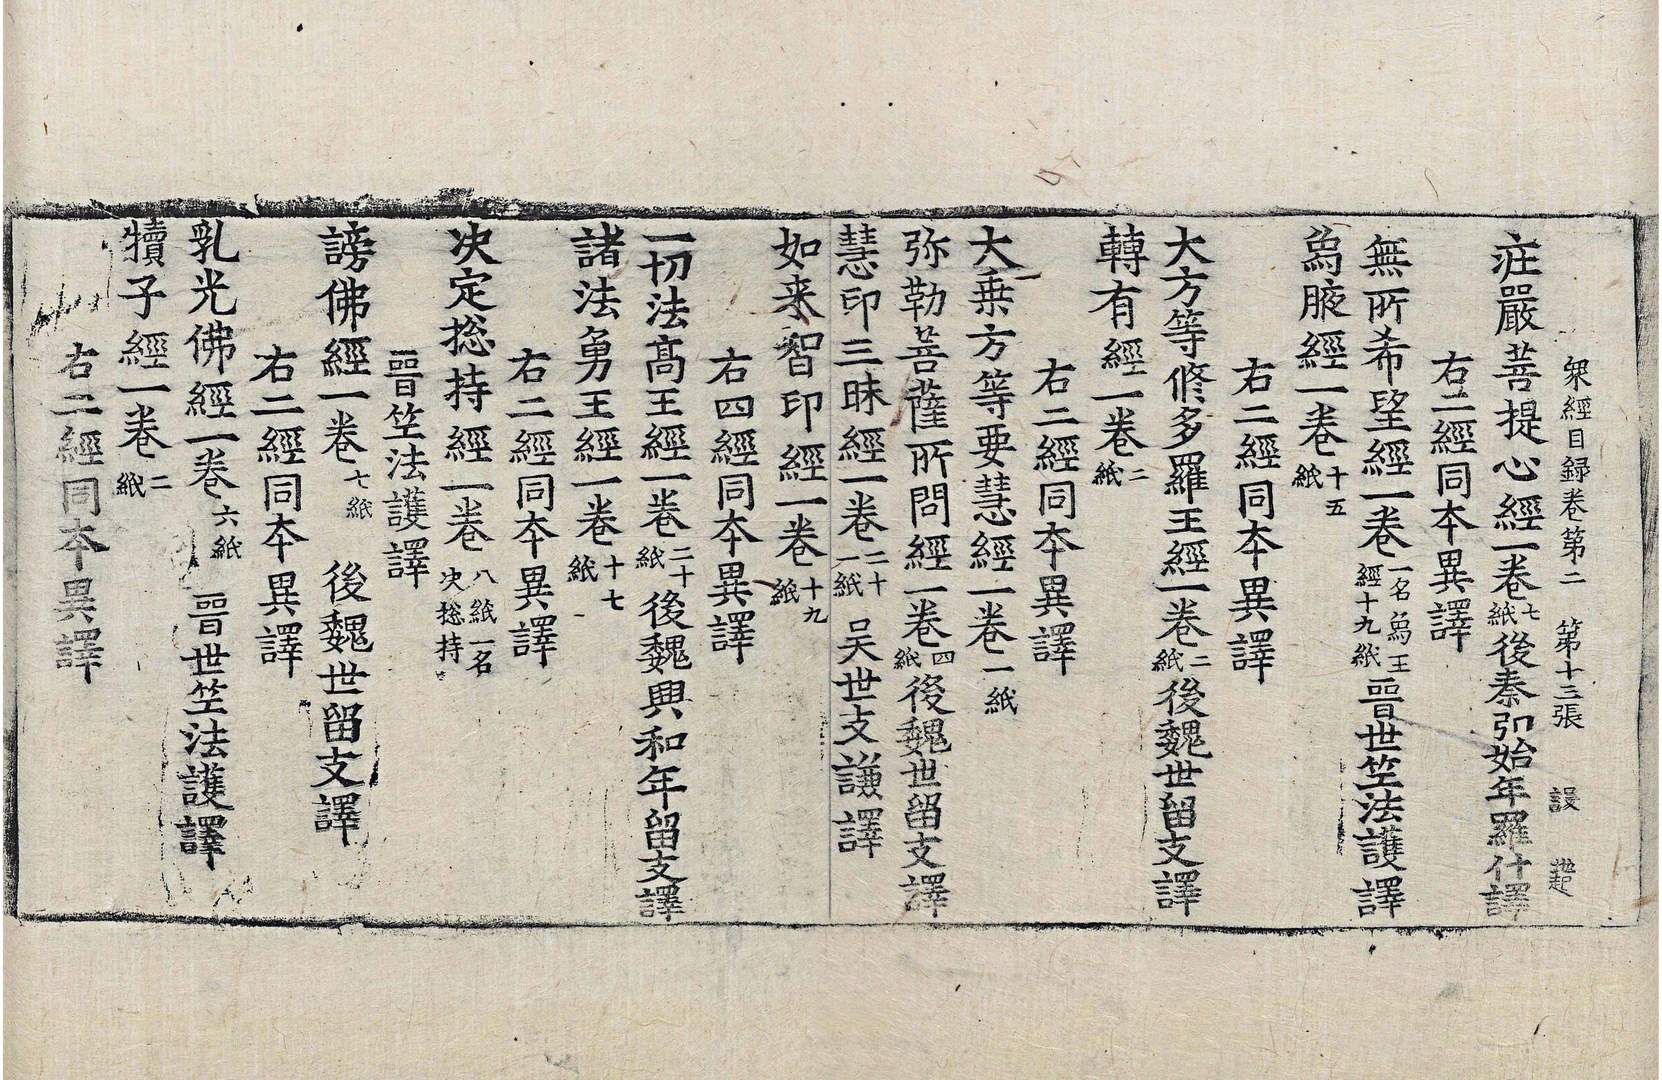 衆經目録卷第二　第十三張　設　趂
疰嚴菩提心經一卷七紙後秦弘始年羅什譯
右二經同本異譯
無所希望經一卷一名爲王經十九紙晉世竺法護譯
爲腋經一卷十五紙
右二經同本異譯
大方等修多羅王經一卷二紙後魏世留支譯
轉有經一卷二紙
右二經同本異譯
大乗方等要慧經一卷一紙
弥勒菩薩所問經一卷四紙後魏世留支譯
慧印三昧經一卷二十一紙　吴世支謙譯
如来智印經一卷十九紙
右四經同本異譯
一切法髙王經一卷二十紙後魏興和年留支譯
諸法勇王經一卷十七紙
右二經同本異譯
决定捴持經一卷八紙一名决捴持
晉竺法護譯
謗佛經一卷七紙　後魏世留支譯
右二經同本異譯
乳光佛經一卷六紙　晉世竺法護譯
犢子經一卷二紙
右二經同本異譯